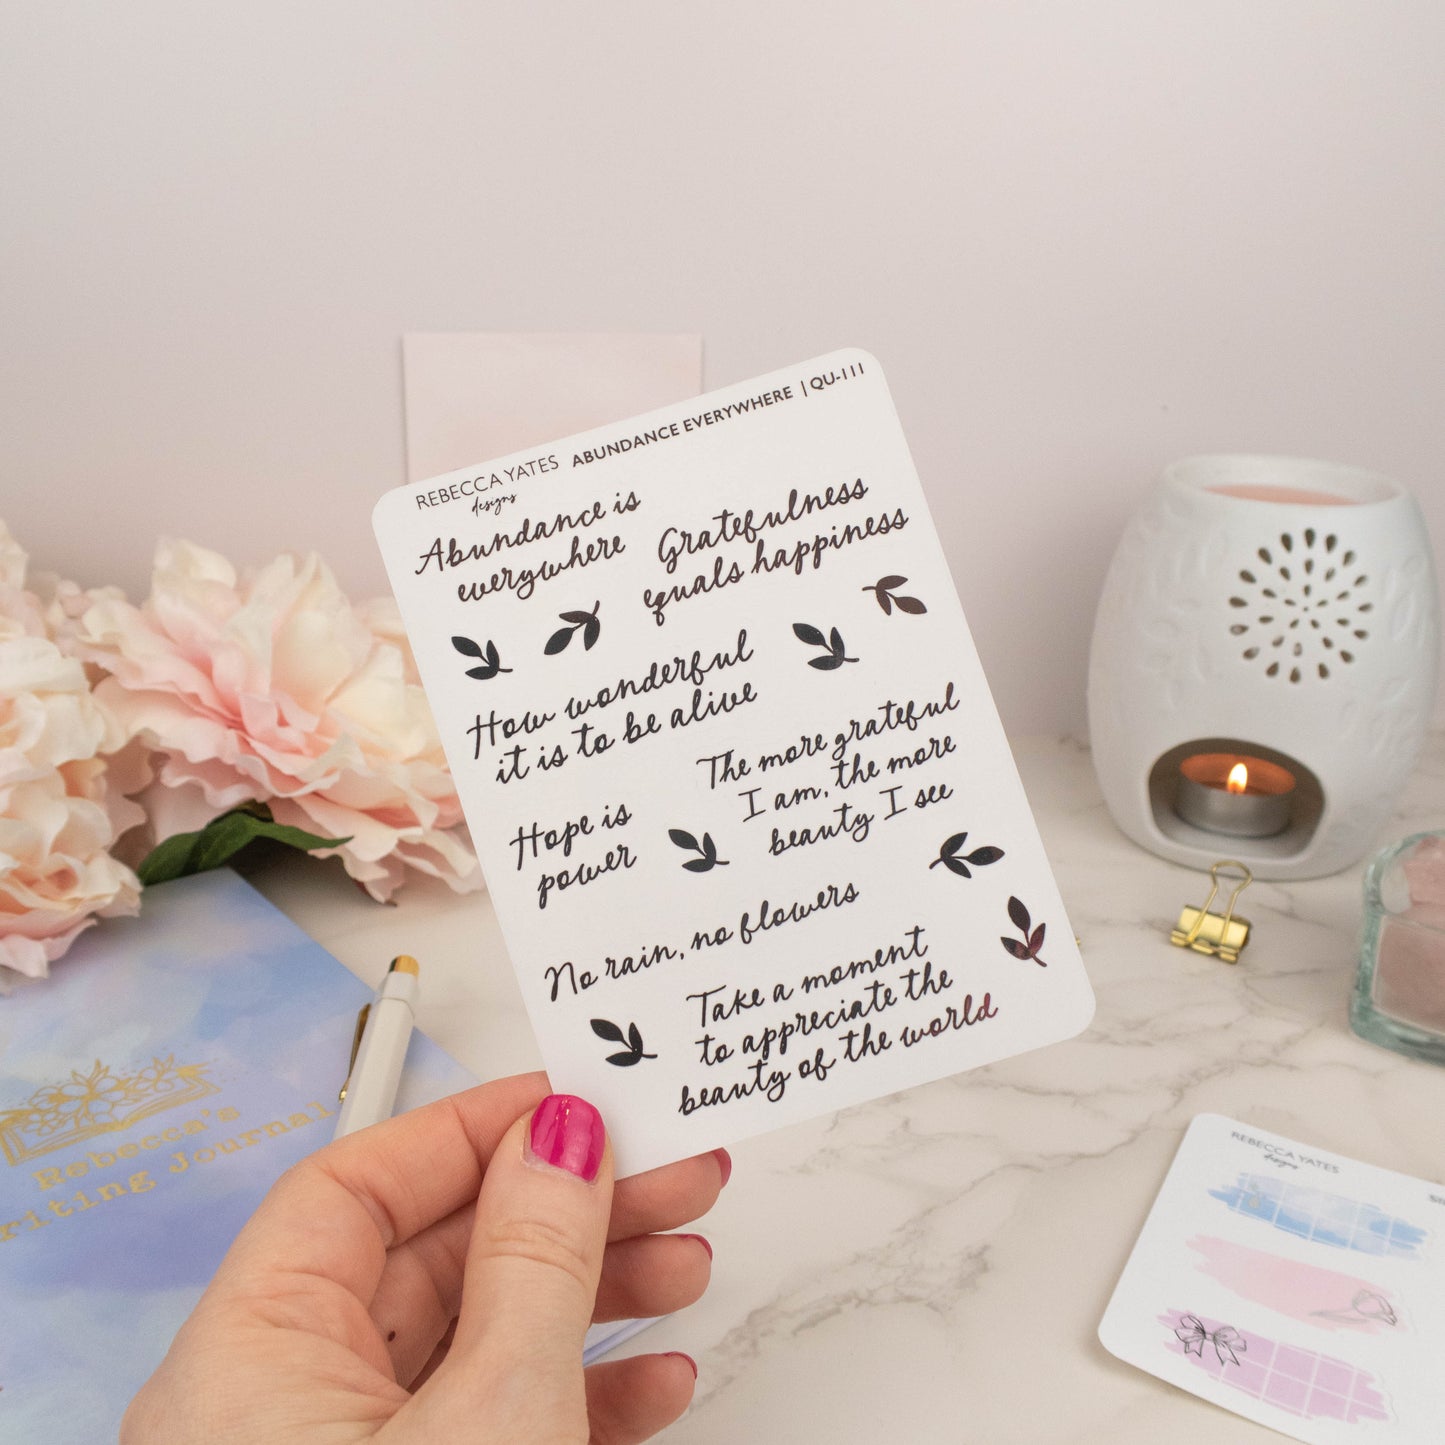 REBECCA YATES
designs
ABUNDANCE EVERYWHERE | QU-111
Abundance is
everywhere
Gratefulness
equals happiness
How wonderful
it is to be alive
The more grateful
I am, the more
beauty I see
Hope is
power
No rain, no flowers
Take a moment
to appreciate the
beauty of the world
Rebecca's
riting Journal
REBECCA YATES
designs